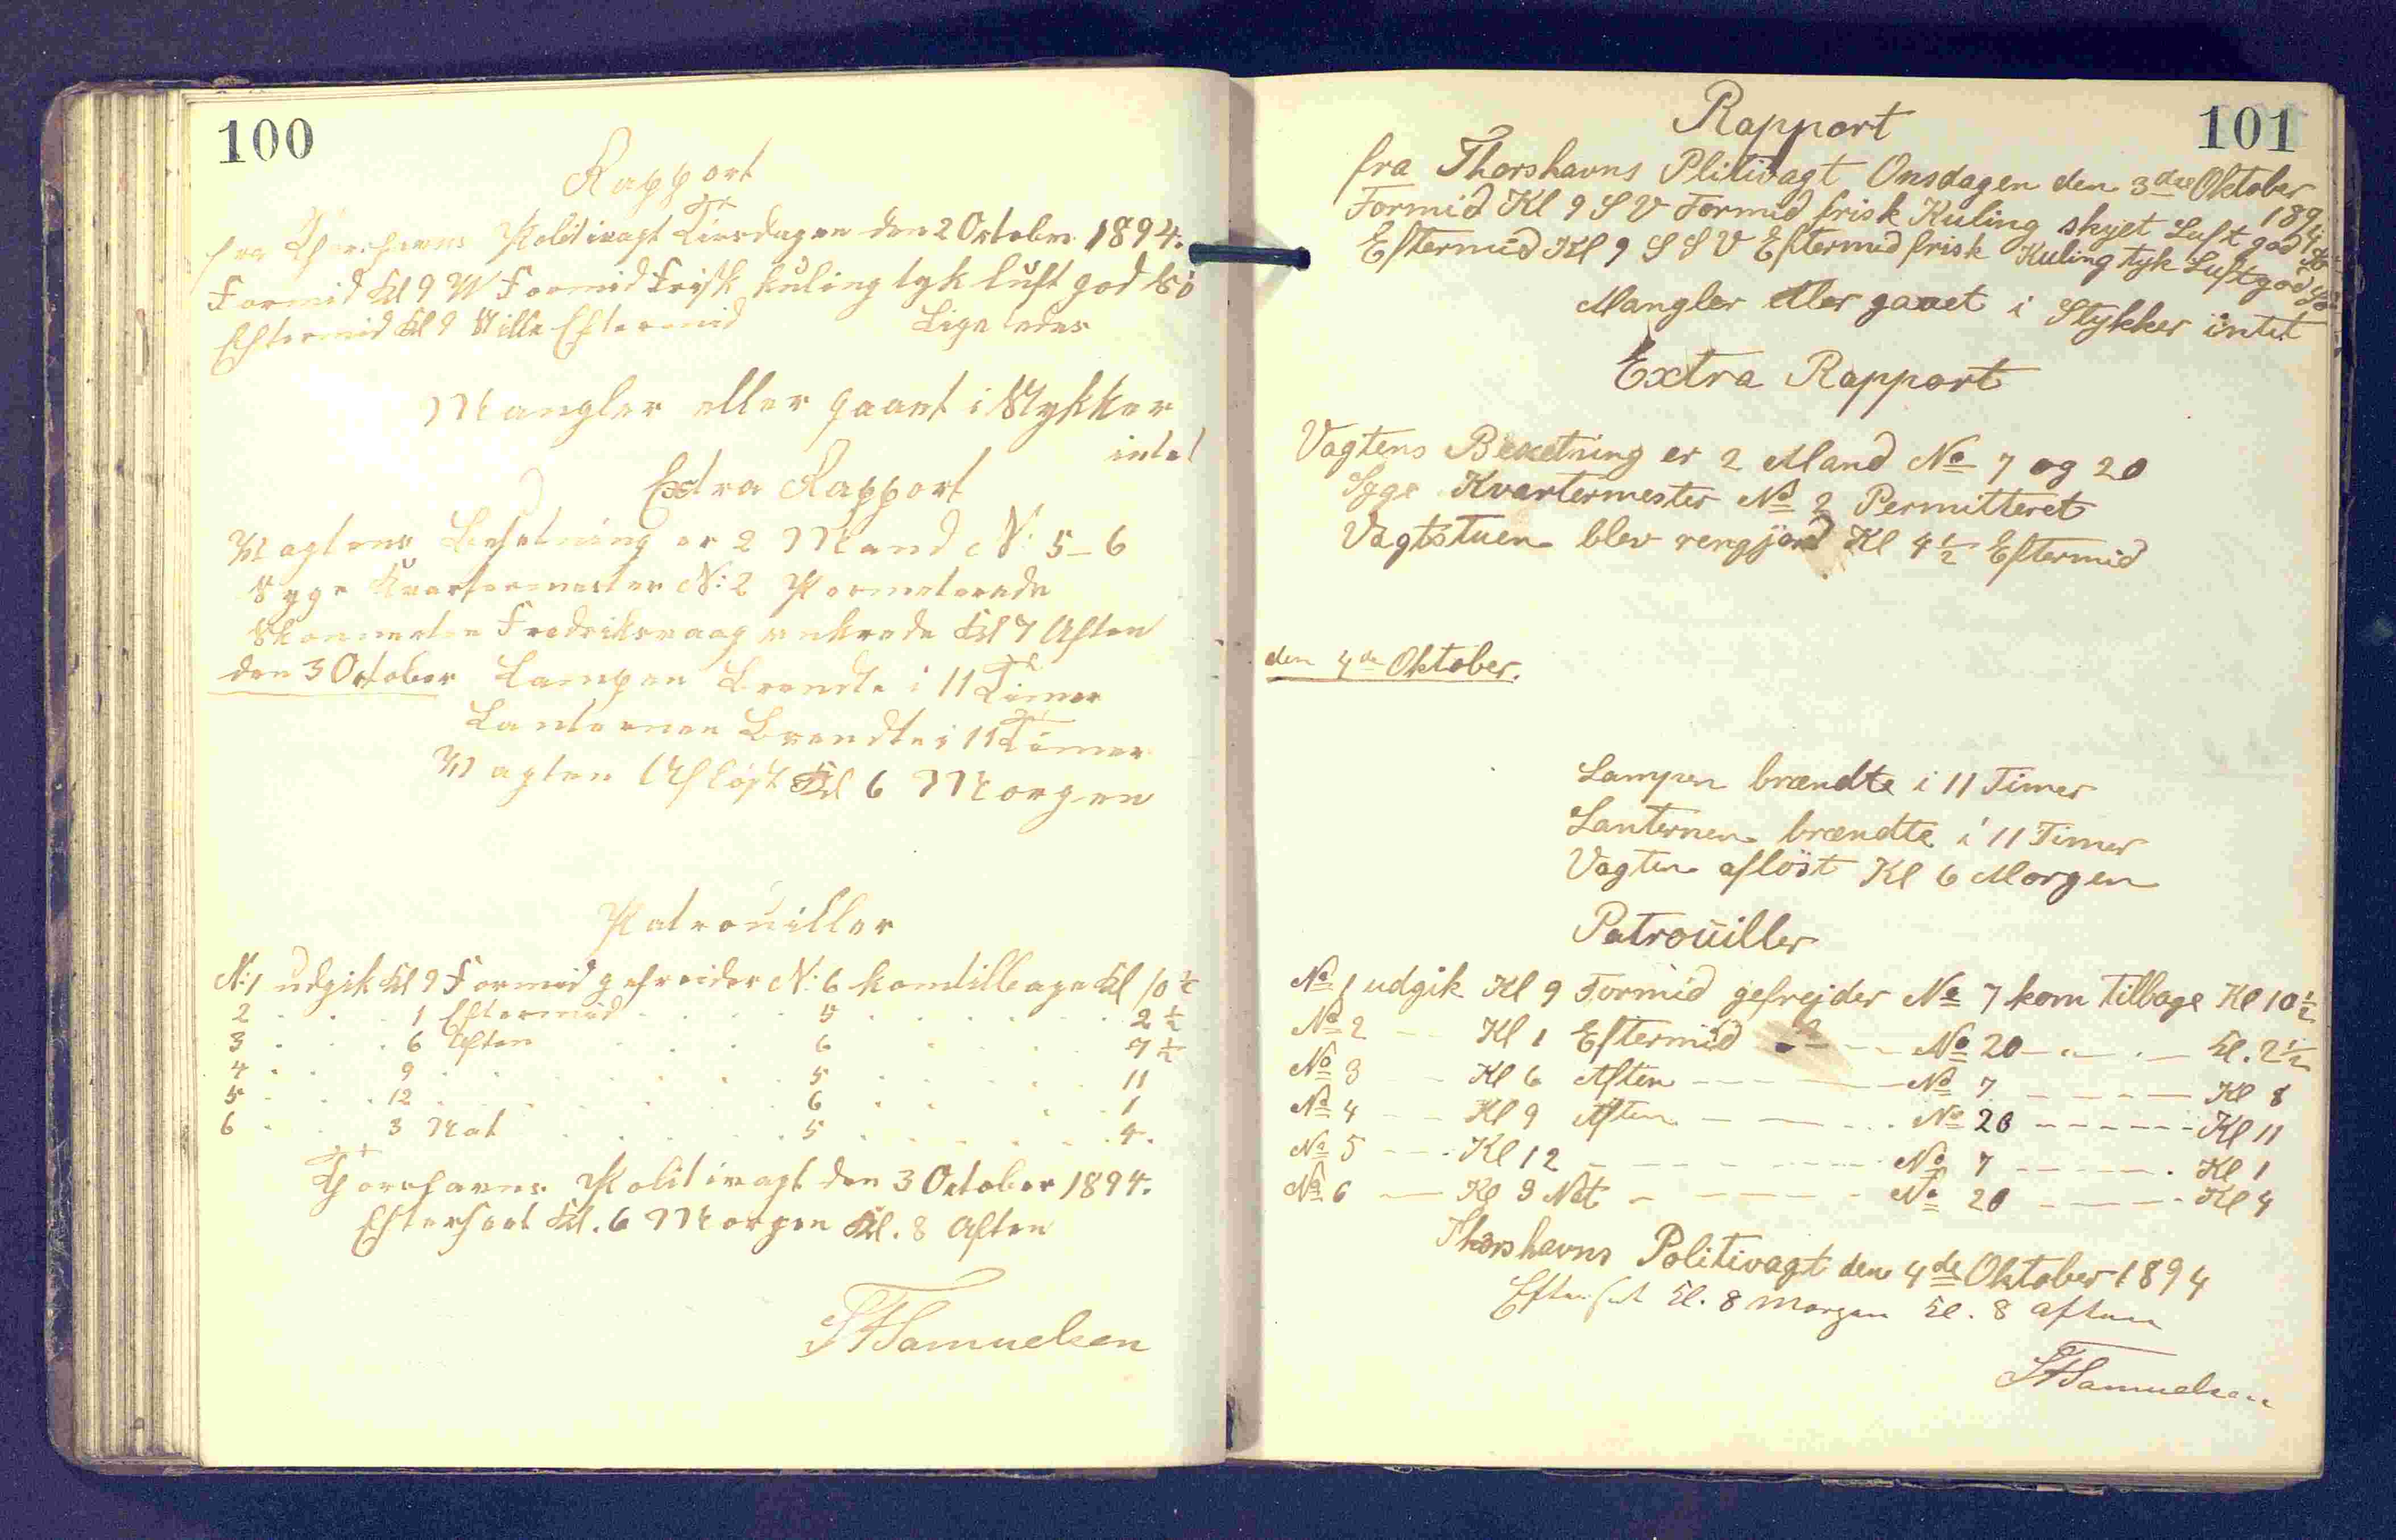 100
Rapport
fra Thorshavns Politivagt Tirsdagen den 2 October 1894.
Formid Kl 9 W Formid Frisk kuling tyk luft god Sö
Eftermid Kl 9 Stille Eftermid Ligeledes
Mangler eller gaaet i Stykker
intet
Extra Rapport
Vagtens Besetning er 2 Mand N: 5-6
Syge Kvartermester N: 2 Permeterede
Skonnerten Fredriksvaag ankrede Kl 7 Aften
den 3 October Lampen Brendte i 11 Timer
Lanternen Brendte i 11 Timer
Vagten Aflöst Kl 6 Morgen
Patrouiller
N: 1 udgik Kl 9 Formid gefreider N: 6 kom tilbage Kl 10 ½
2 . . . 1 Eftermid . . . . 5 . . . . . . 2 ½
3 . . . 6 Aften . . . 6 . . . . 7 ½
4 . . . 9 . . . . . . 5 . . . . . 11
5 . . . 12 . . . . . 6 . . . . 1
6 . . . 3 Nat . . . . 5 . . . . . . 4.
Thorshavns Politivagt den 3 October 1894.
Efterseet Kl. 6 Morgen Kl. 8 Aften
Samuelsen
101
Rapport
fra Thorshavns Plitivagt Onsdagen den 3die Oktober
189
Formid Kl 9 S V Formid frisk Kuling skyet Luft god
Eftermid Kl 9 S S V Eftermid frisk Kuling tyk Luft god
Mangler eller gaaet i Stykker intet
Extra Rapport
Vagtens Besetning er 2 Mand No 7 og 20
Syge Kvartermester No 2 Permitteret
Vagtstuen blev rengjord Kl 4 ½ Eftermid
den 4de Oktober.
Lampen brændte i 11 Timer
Lanternen brændte i 11 Timer
Vagten aflöst Kl 6 Morgen
Patrouiller
No 1 udgik Kl 9 Formid gefrejder No 7 kom Tilbage Kl 10 ½
No 2 — Kl 1 Eftermid — No 20 — Kl. 2 ½
No 3 — Kl 6 Aften — No 7 — Kl 8
No 4 — Kl 9 Aften — No 20 — Kl 11
No 5 — Kl 12 — No 7 — Kl 1
No 6 — Kl 3 Nat — No 20 — Kl 4
Thorshavns Politivagt den 4de Oktober 1894
Efterset Kl. 8 Morgen Kl. 8 aften
Samuelsen